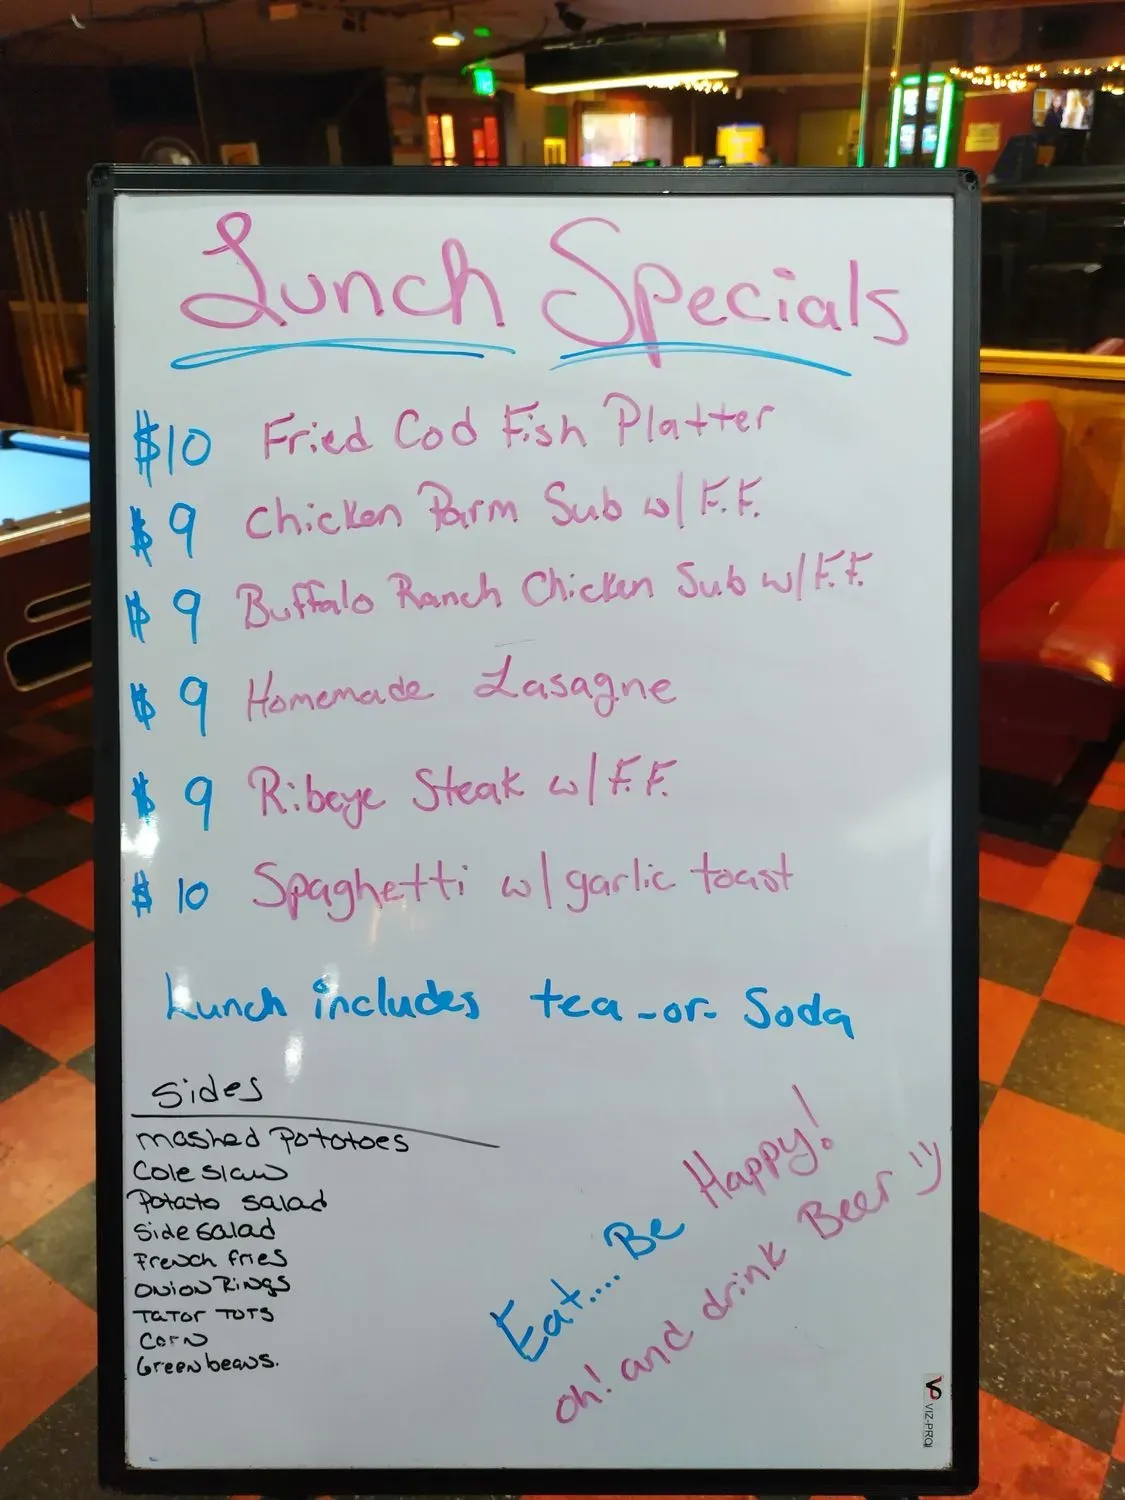 Lunch Specials
$10 Fried Cod Fish Platter
$9 Chicken Parm Sub w/ F.F.
$9 Buffalo Ranch Chicken Sub w/ F.F.
$9 Homemade Lasagne
$9 Ribeye Steak w/ F.F.
$10 Spaghetti w/ garlic toast
Lunch includes tea -or- Soda
Sides
mashed Potatoes
Cole slaw
Potato salad
Side salad
French fries
Onion Rings
Tator Tots
Corn
Green beans.
Eat.... Be Happy!
oh! and drink Beer :)
VIZ-PRO